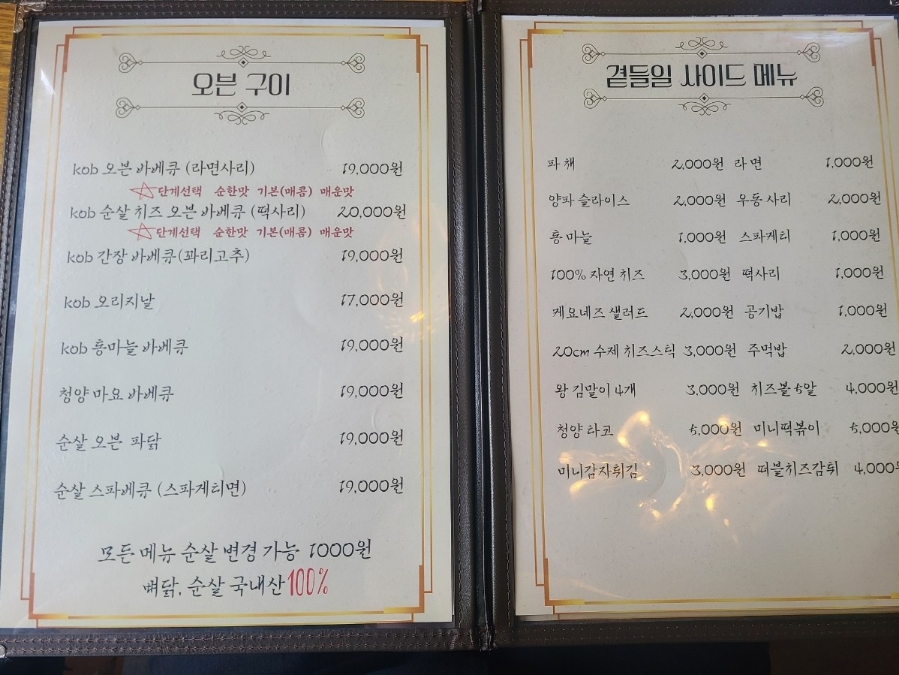 오븐 구이
kob 오븐 바베큐 (라면사리) 19,000원
☆단계선택 순한맛 기본(매콤) 매운맛
kob 순살 치즈 오븐 바베큐 (떡사리) 20,000원
☆단계선택 순한맛 기본(매콤) 매운맛
kob 간장 바베큐(꽈리고추) 19,000원
kob 오리지날 17,000원
kob 통마늘 바베큐 19,000원
청양 마요 바베큐 19,000원
순살 오븐 파닭 19,000원
순살 스파베큐 (스파게티면) 19,000원
모든 메뉴 순살 변경 가능 1000원
뼈닭, 순살 국내산 100%
곁들일 사이드 메뉴
파채 2,000원 라면 1,000원
양파 슬라이스 2,000원 우동 사리 2,000원
통마늘 1,000원 스파게티 1,000원
100% 자연 치즈 3,000원 떡사리 1,000원
케요네즈 샐러드 2,000원 공기밥 1,000원
20cm 수제 치즈스틱 3,000원 주먹밥 2,000원
왕 김말이 4개 3,000원 치즈볼 5알 4,000원
청양 타코 5,000원 미니떡볶이 5,000원
미니감자튀김 3,000원 떠블치즈감튀 4,000원